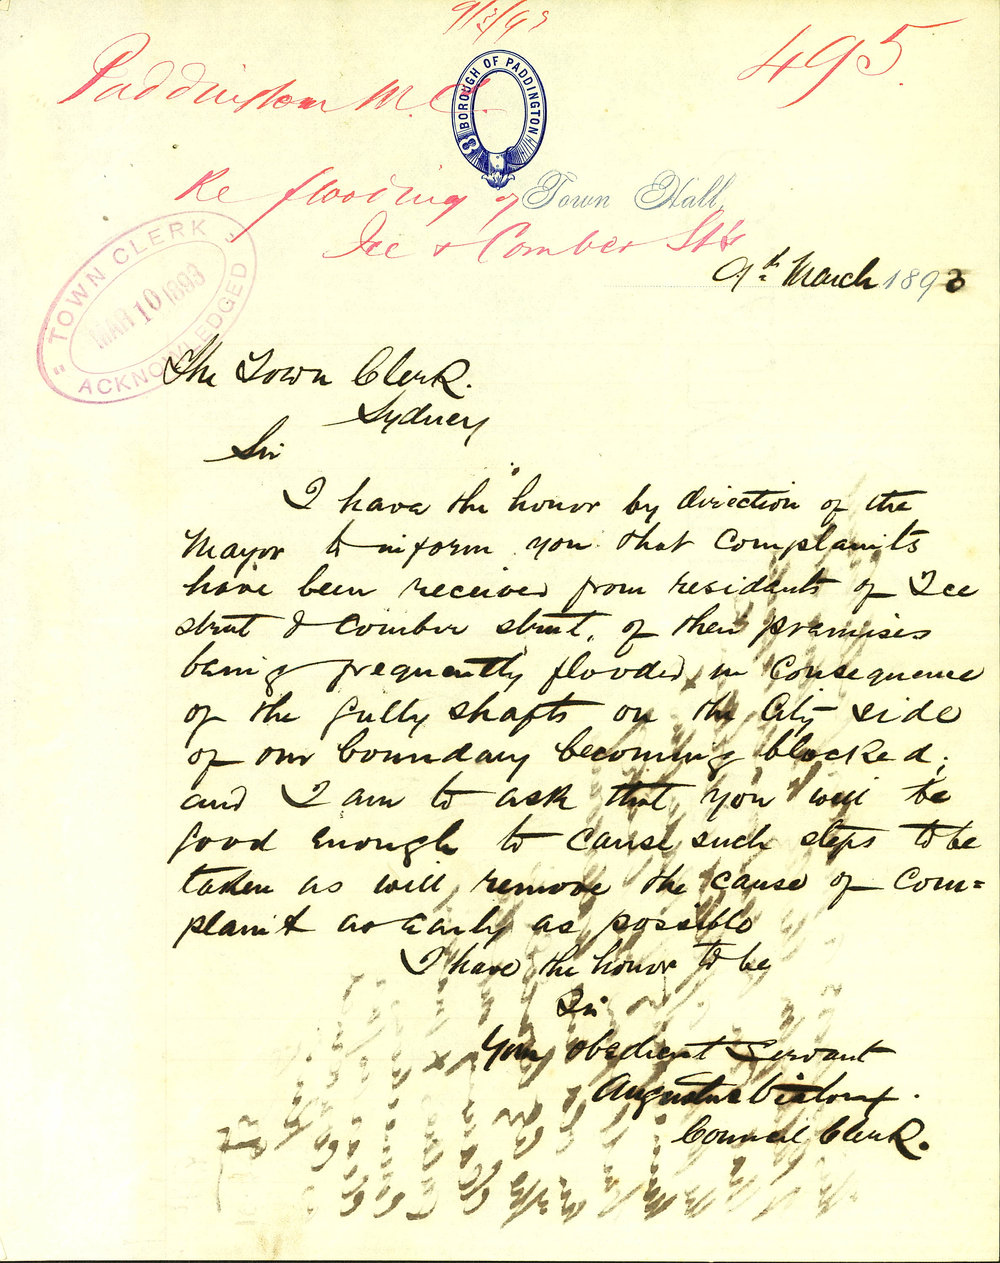 9/3/93
Paddington M.C.
495
BOROUGH OF PADDINGTON
Re flooding of
Town Hall,
Ice & Comber Sts
9th March 1893
"TOWN CLERK"
MAR 10 1893
ACKNOWLEDGED
The Town Clerk.
Sydney
Sir
I have the honor by direction of the
Mayor to inform you that complaints
have been received from residents of Ice
street & Comber street, of their premises
being frequently flooded in consequence
of the gully shafts on the City side
of our boundary becoming blocked;
and I am to ask that you will be
good enough to cause such steps to be
taken as will remove the cause of com=
plaint as early as possible
I have the honor to be
Sir
Your obedient Servant
Augustus
Council Clerk.